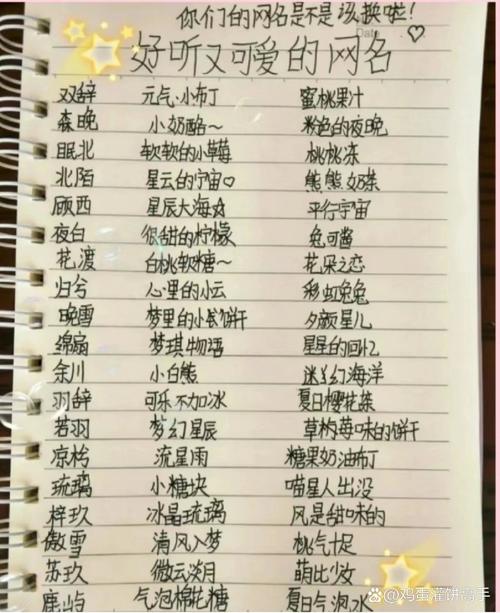 你们的网名是不是该换啦!
Date
好听又可爱的网名
双辞 元气·小布丁 蜜桃果汁
森晚 小奶酪~ 粉色的夜晚
眠北 软软的小草莓 桃桃冻
北陌 星云的宇宙♡ 熊熊奶茶
顾西 星辰大海☆ 平行宇宙
夜白 很甜的柠檬 兔可酱
花渡 白桃软糖~ 花朵之恋
归兮 心里的小云 彩虹兔兔
晚雪 梦里的小饼干 夕颜星儿
绵扇 梦琪物语 星星的回忆
余川 小白熊 迷幻海洋
羽辞 可乐不加冰 夏日樱花茶
若羽 梦幻星辰 草莓味的饼干
凉柃 流星雨 糖果奶油布丁
琉璃 小糖块 喵星人出没
梓玖 冰晶琉璃 风是甜味的
傲雪 清风入梦 桃气十足
苏玖 微云淡月 萌比少女
鹿屿 气泡棉花糖 夏日气泡水
@鸡蛋灌饼高手